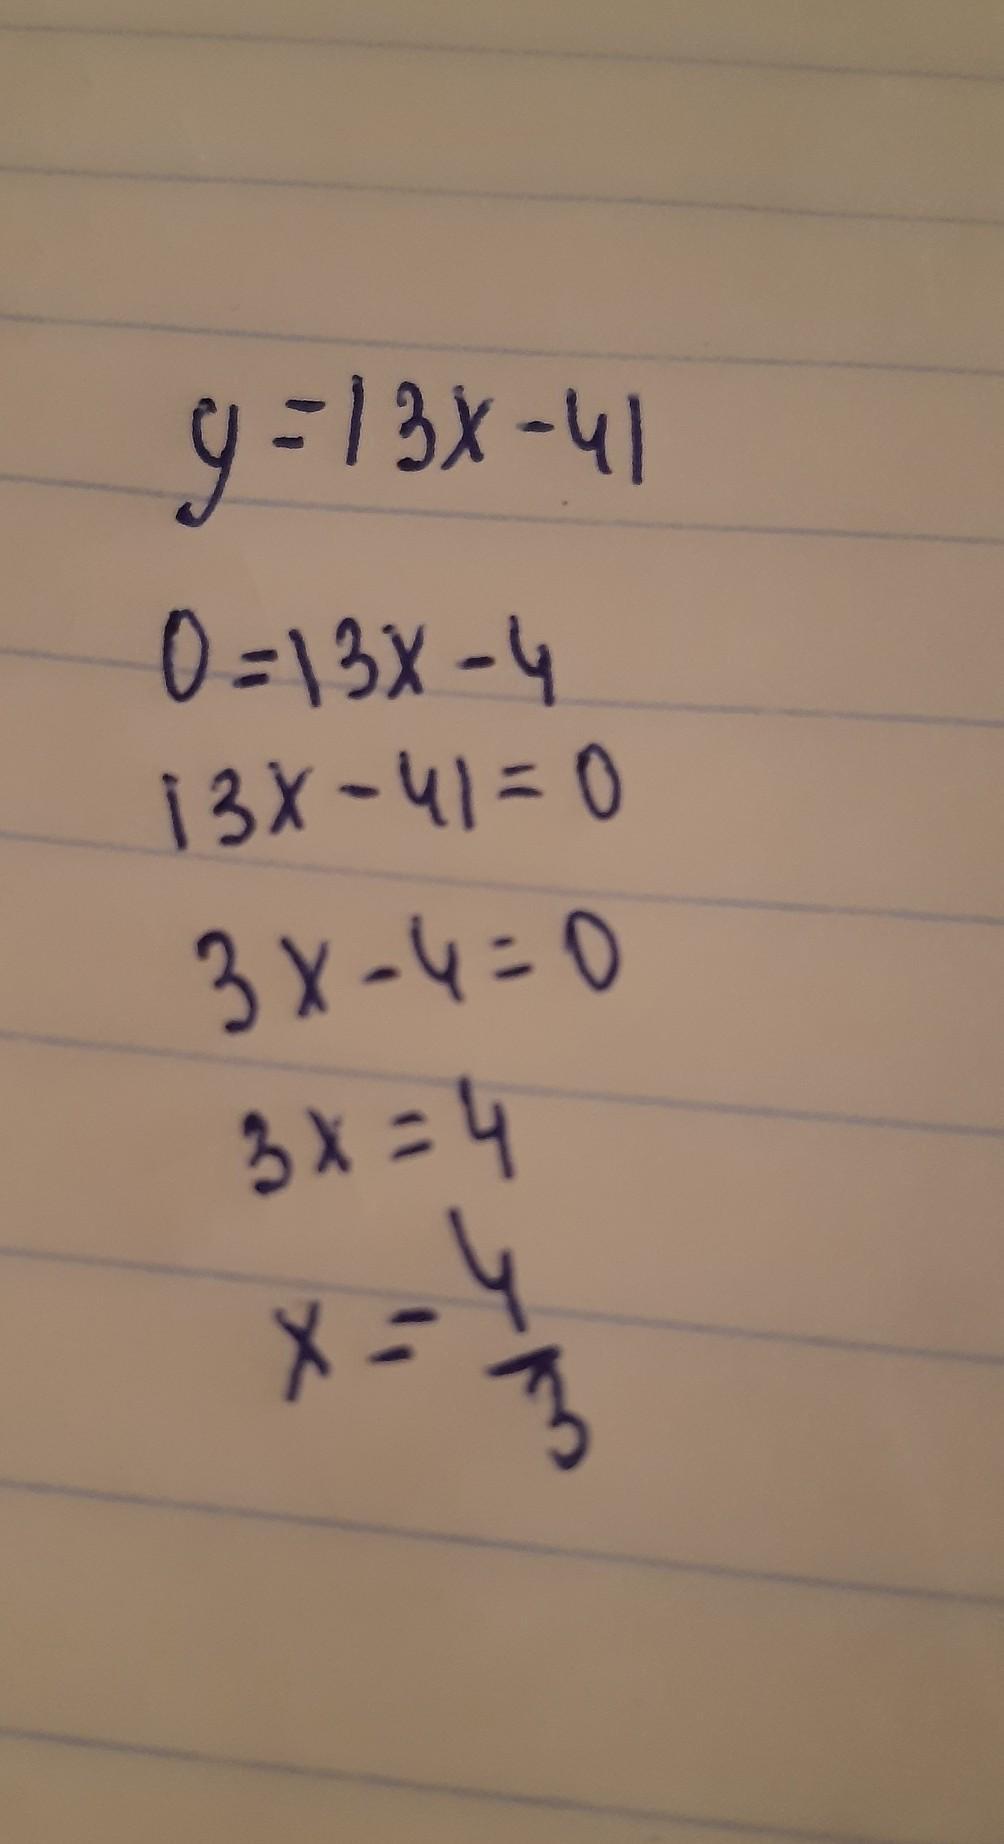 y=|3x-4|
0=|3x-4
|3x-4|=0
3x-4=0
3x=4
x=4/3